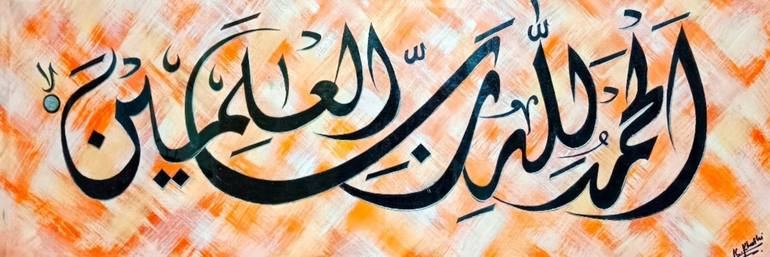 الحمد لله رب العلمين لا